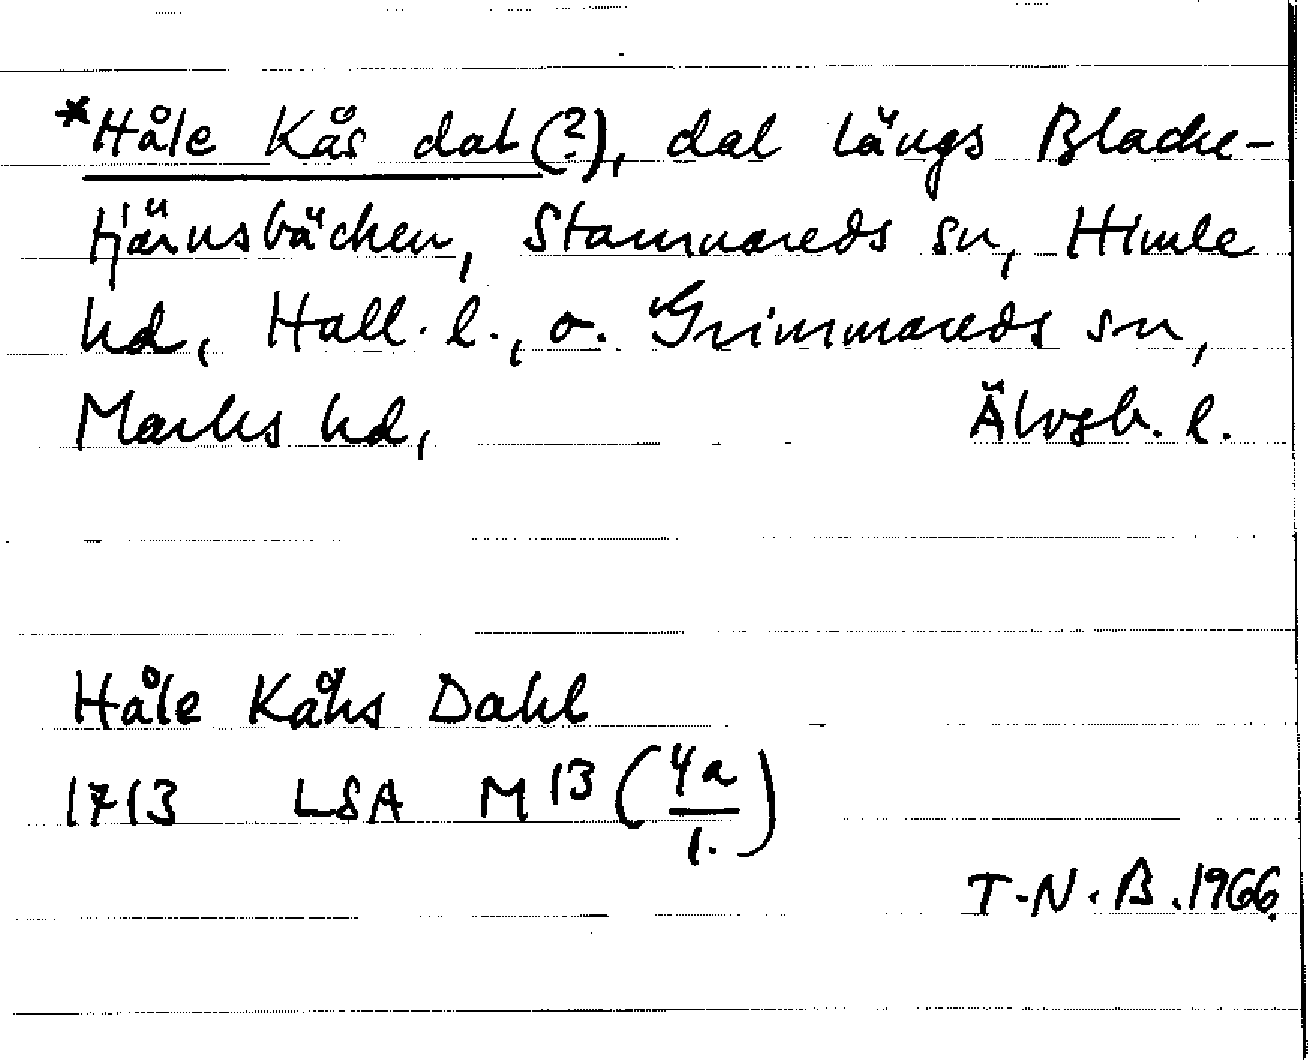 *Håle Kås dal (?), dal längs Blacke-
tjärnsbäcken, Stamnareds sn, Himle
hd, Hall. l., o. Grimmareds sn,
Marks hd, Älvsb. l.
Håle Kåhs Dahl
1713 LSA M 13 (4a/1.)
T-N. B. 1966.